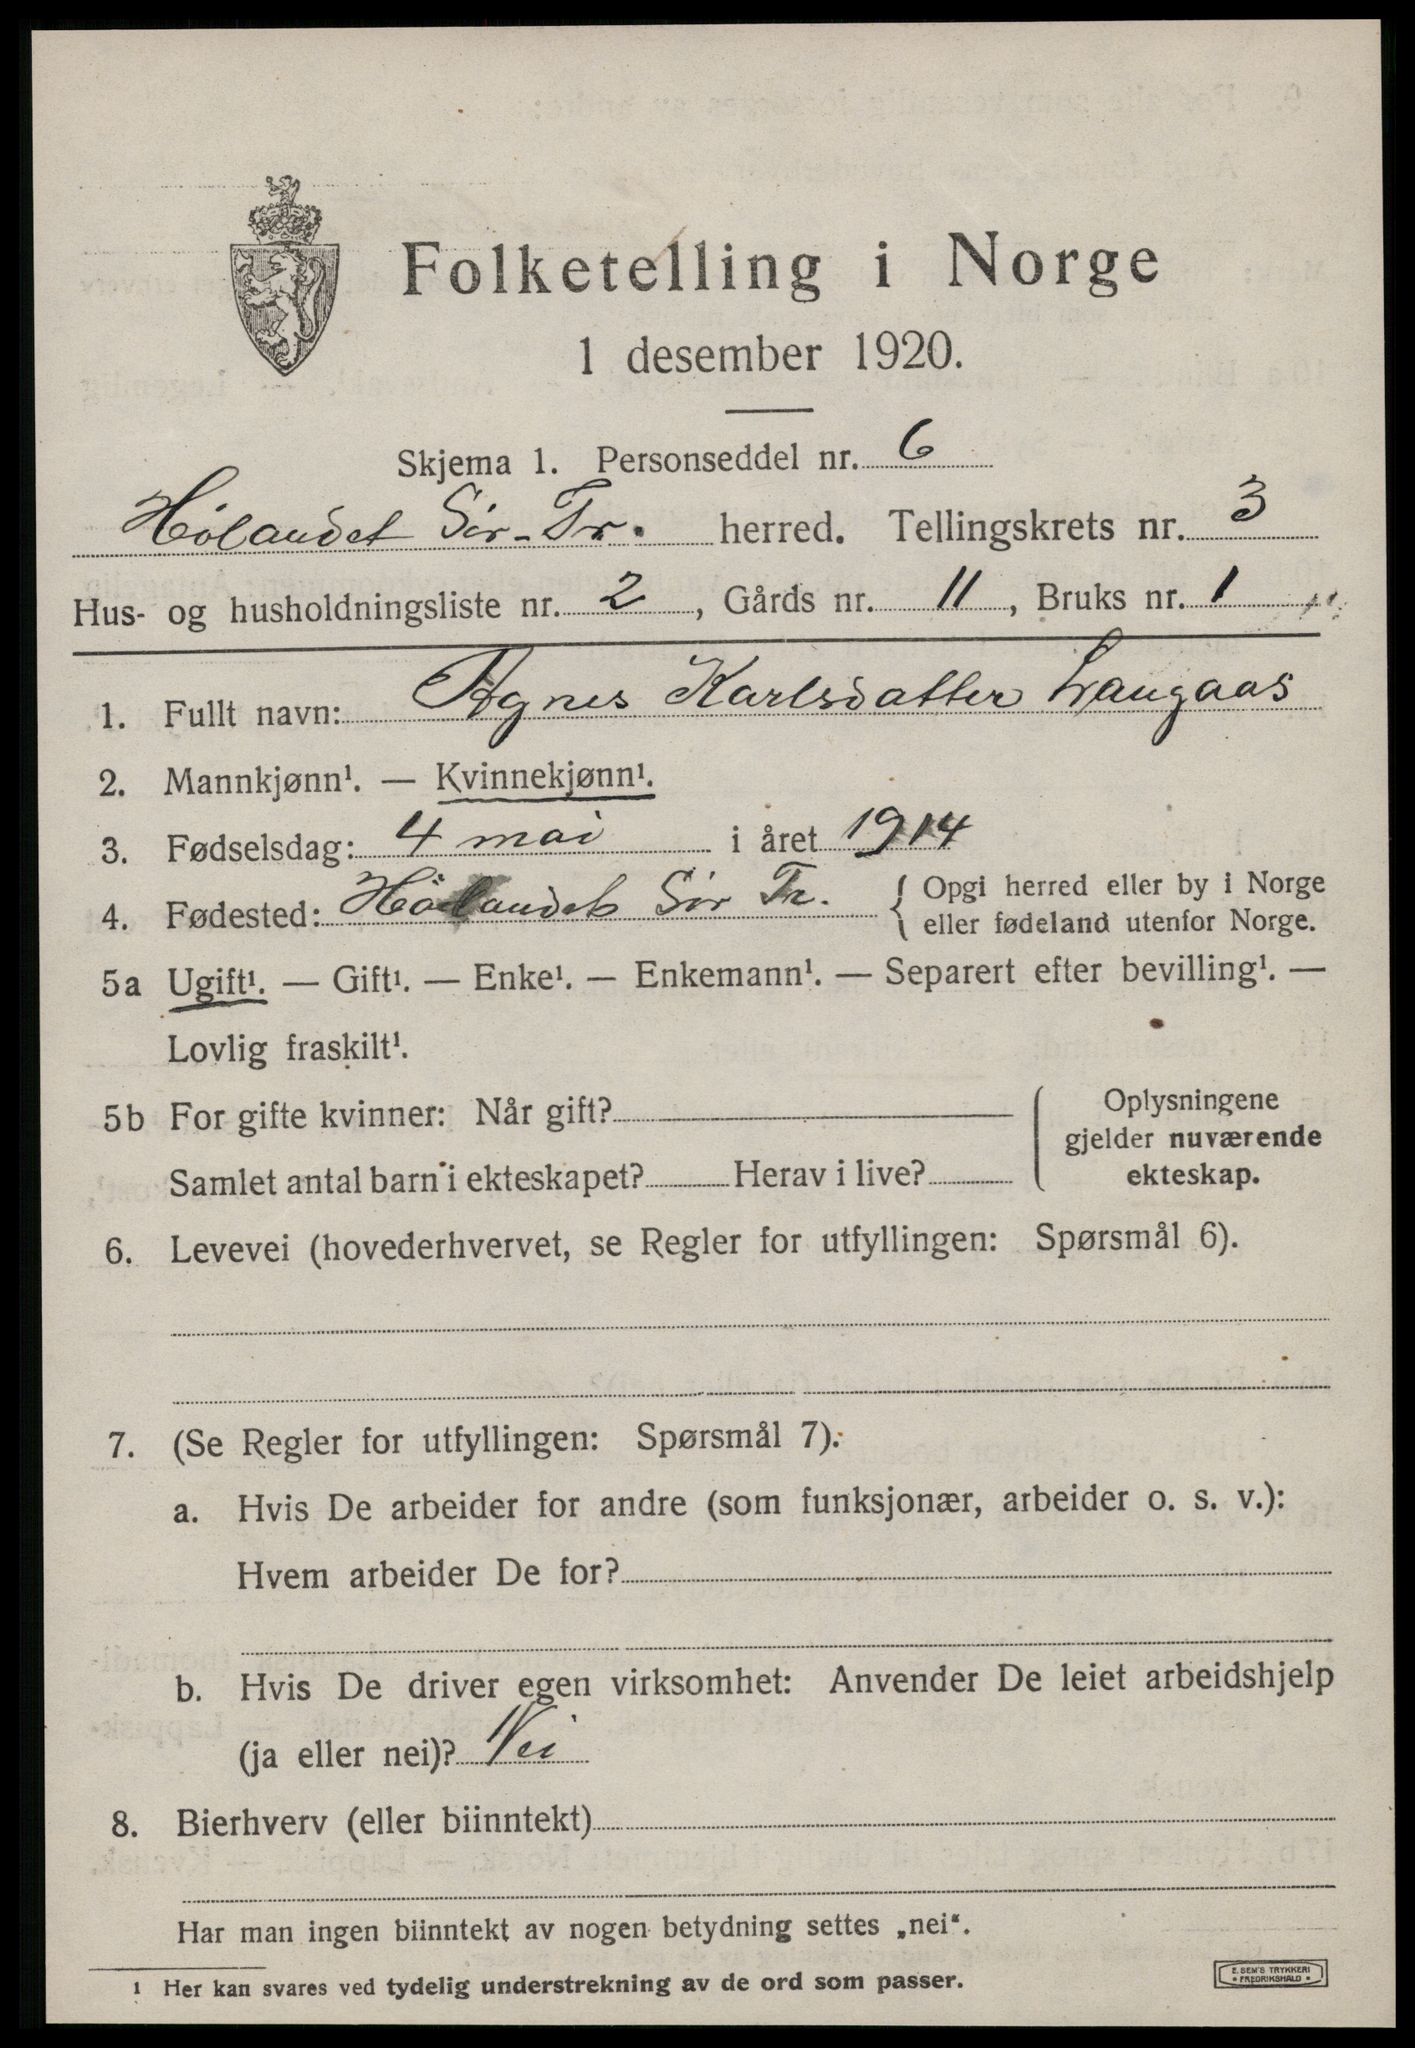 Folketelling i Norge
1 desember 1920.
Skjema 1. Personseddel nr. 6
Hølandet Sør-Tr. herred. Tellingskrets nr. 3
Hus- og husholdningsliste nr. 2, Gårds nr. 11, Bruks nr. 1
1. Fullt navn: Agnes Karlsdatter Langaas
2. Mannkjønn¹. — Kvinnekjønn¹.
3. Fødselsdag: 4 mai i året 1914
4. Fødested: Hölandet Sör Tr. { Opgi herred eller by i Norge
eller fødeland utenfor Norge.
5a Ugift¹. — Gift¹. — Enke¹. — Enkemann¹. — Separert efter bevilling¹. —
Lovlig fraskilt¹.
5b For gifte kvinner: Når gift?
Samlet antal barn i ekteskapet? Herav i live?
Oplysningene
gjelder nuværende
ekteskap.
6. Levevei (hovederhvervet, se Regler for utfyllingen: Spørsmål 6).
7. (Se Regler for utfyllingen: Spørsmål 7).
a. Hvis De arbeider for andre (som funksjonær, arbeider o. s. v.):
Hvem arbeider De for?
b. Hvis De driver egen virksomhet: Anvender De leiet arbeidshjelp
(ja eller nei)? Nei
8. Bierhverv (eller biinntekt)
Har man ingen biinntekt av nogen betydning settes „nei“.
1 Her kan svares ved tydelig understrekning av de ord som passer.
E. SEM'S TRYKKERI
• FREDRIKSHALD •